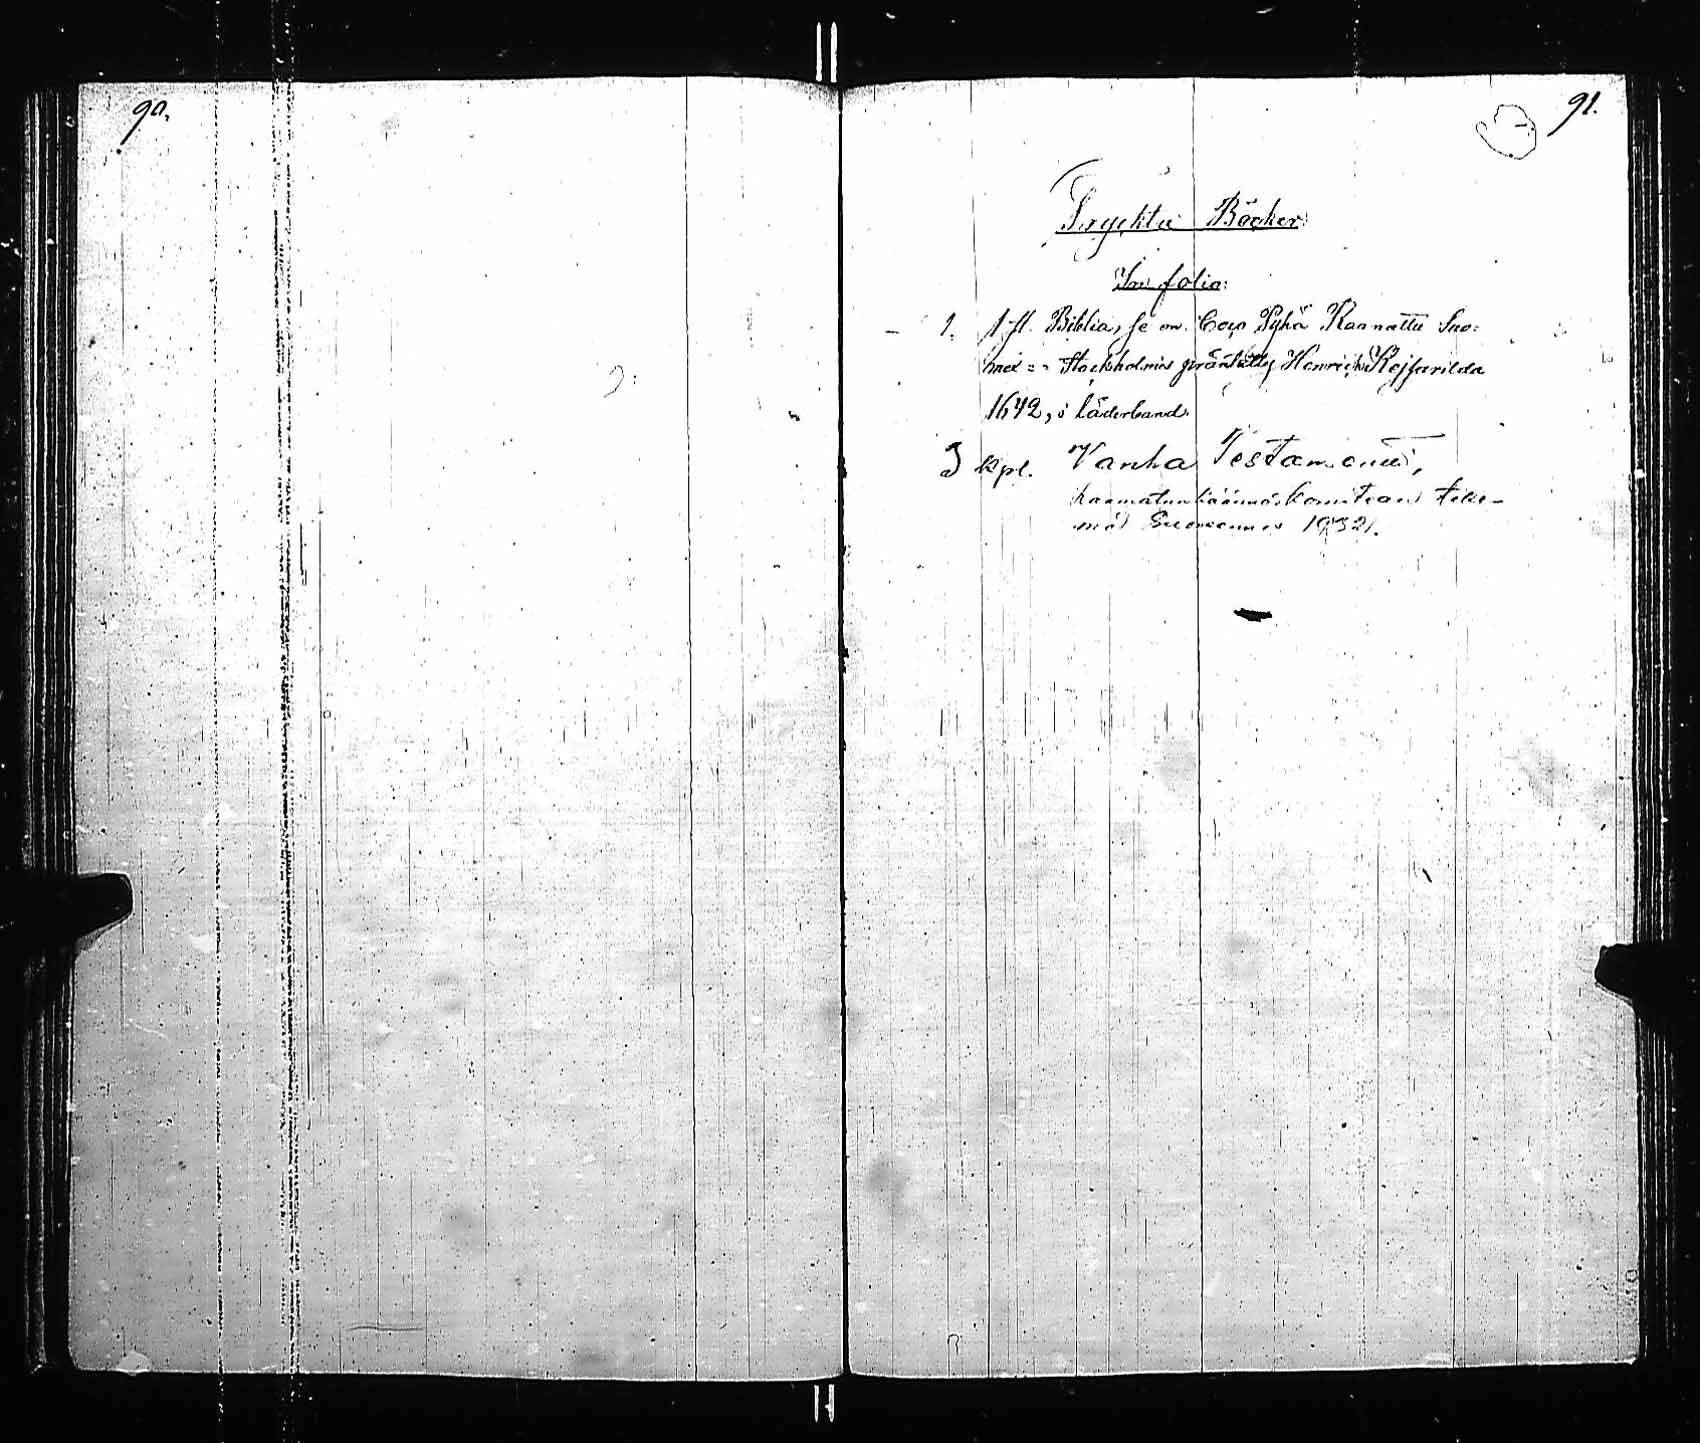 90.
91.
Tryckta Böcker
In folio:
1. 1 st. Biblia, se on Coco Pyhä Raamattu Suo=
mex = Stockholmis präntätty Henrich Kejsarilda
1642, i läderband.
3 kpl. Vanha Testamentti,
Raamatunkäännöskomitean teke-
mä Suomennos 1932.